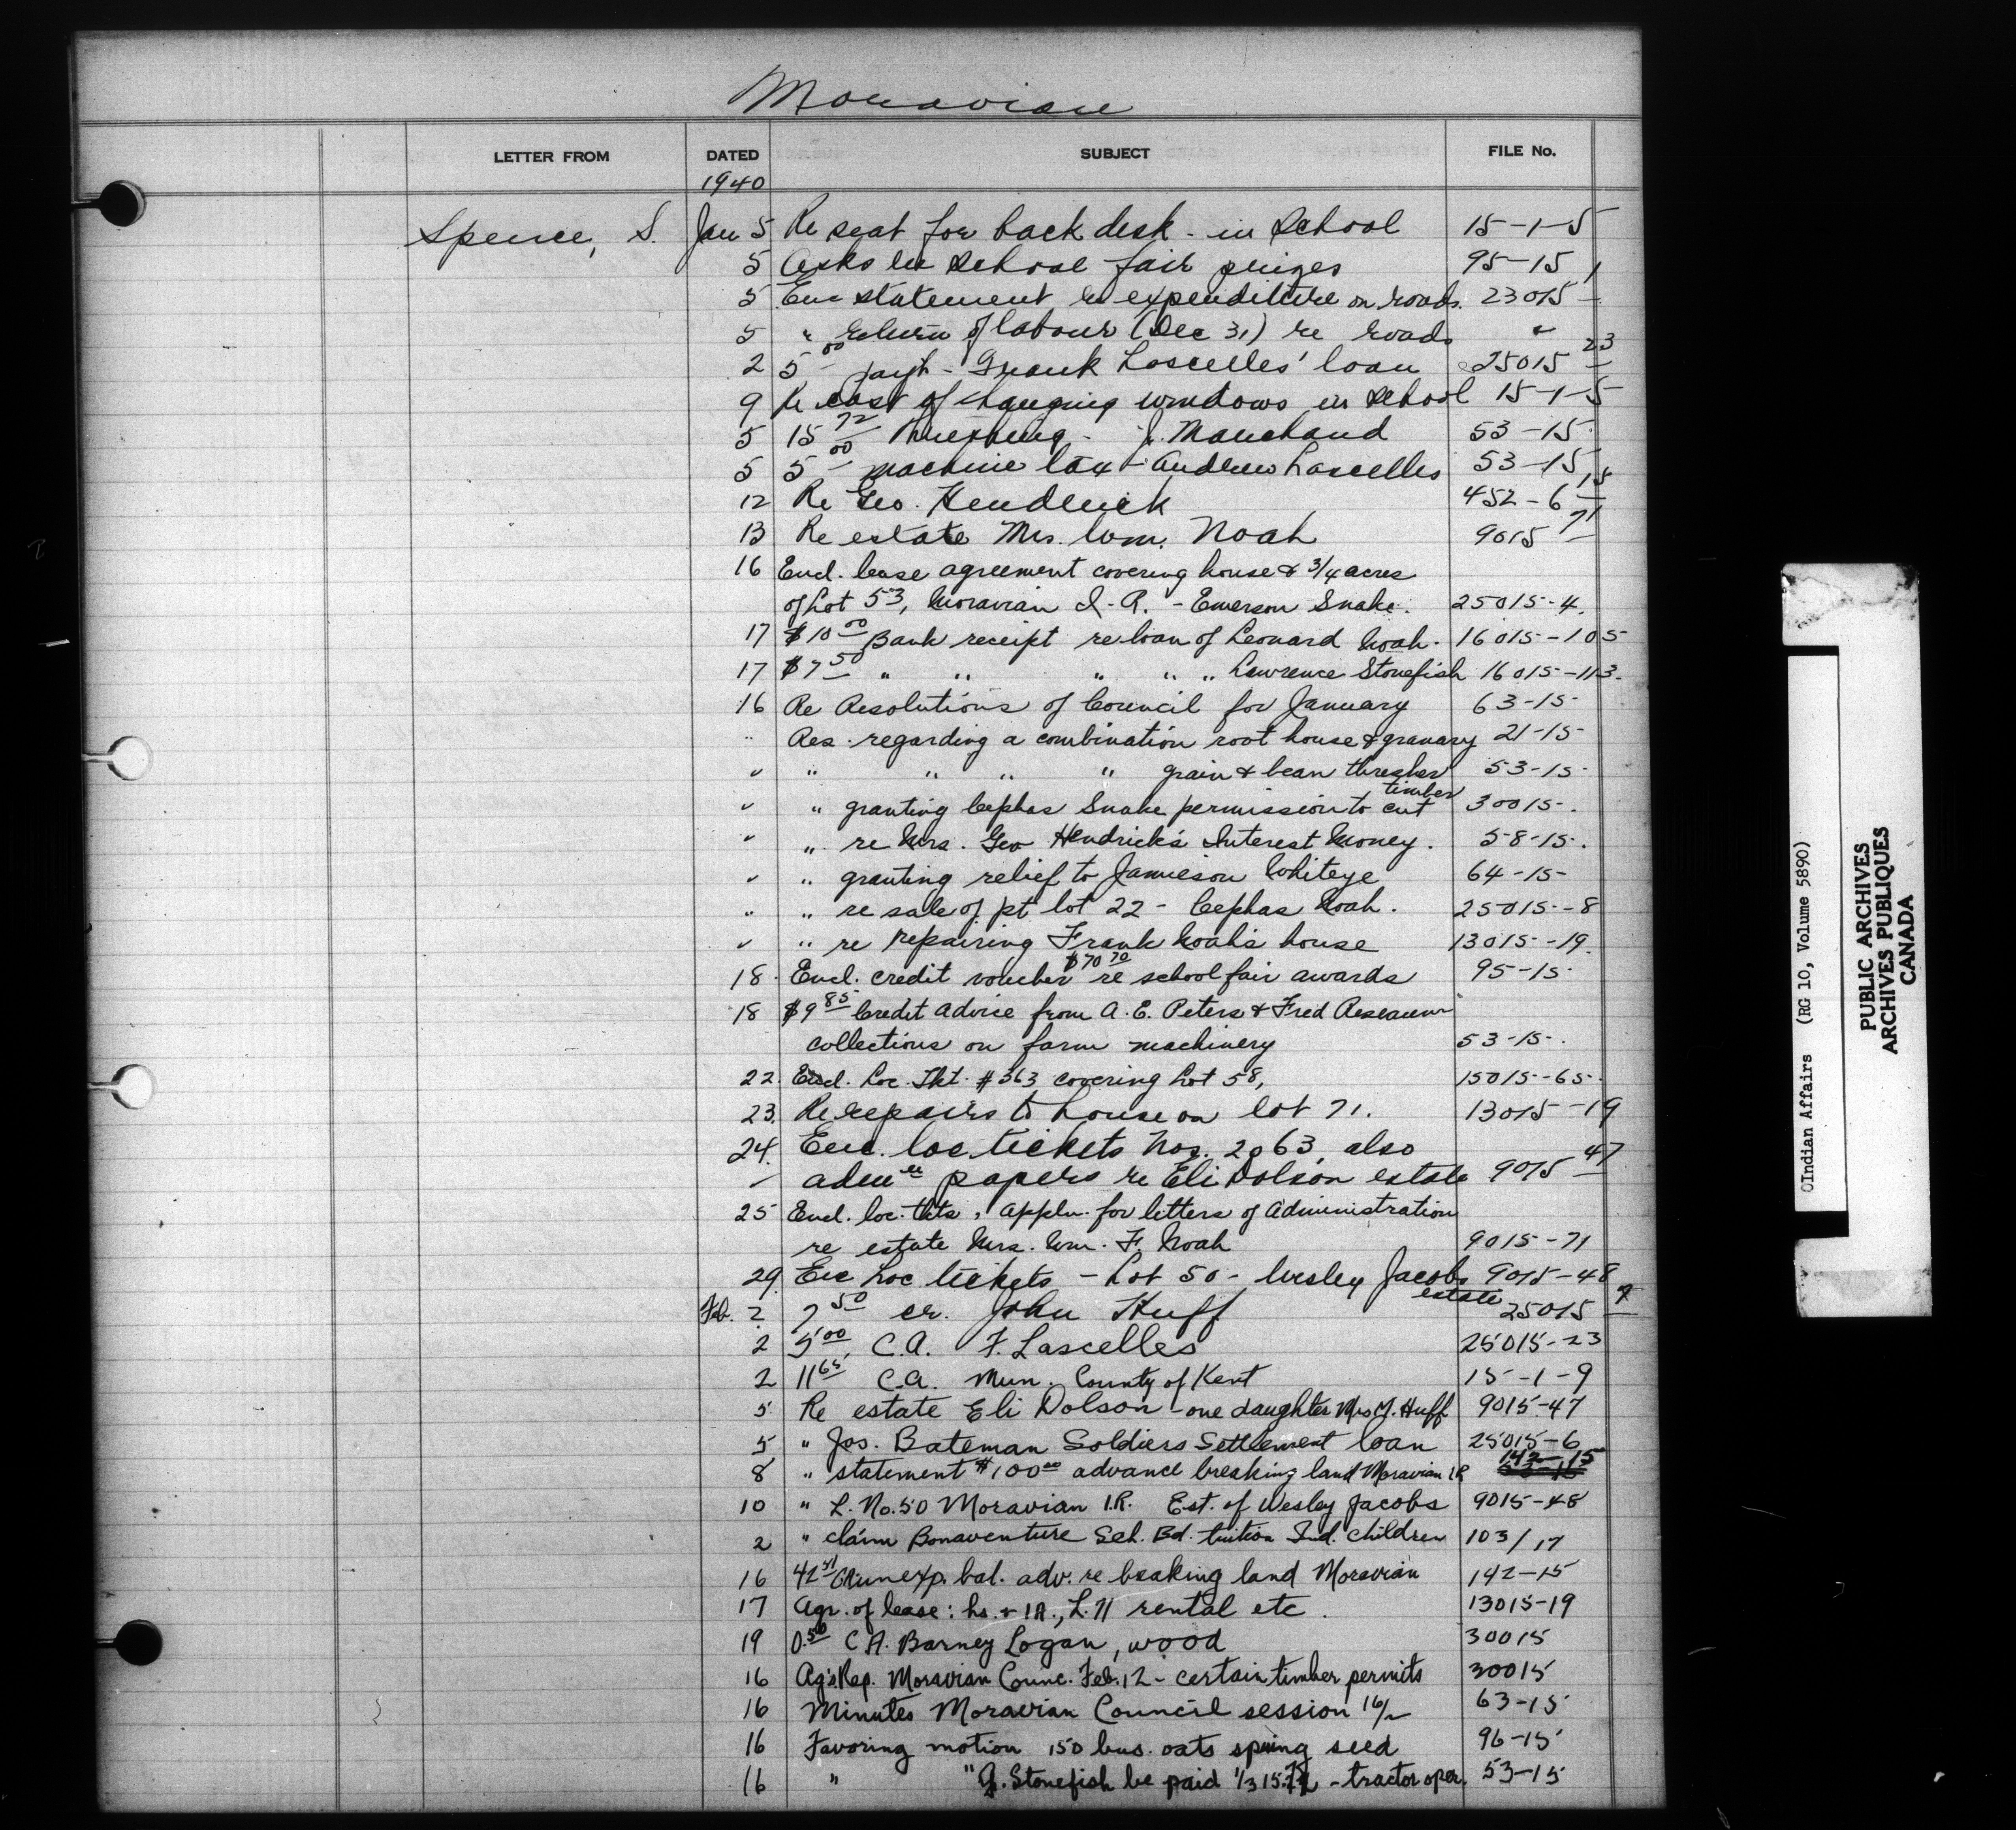 Moravian
LETTER FROM DATED SUBJECT FILE No.
1940
Spence, S. Jan 5 Re seat for back desk - in School 15-1-5
5 Asks re School fair prizes 95-15
5 Enc statement re expenditure on roads. 23015
5 " return of labour (Dec 31) re roads "
2 5 00 payt - Frank Lascelles' loan 25015 23
9 Re cost of changing windows in School 15-1-5
5 15 72 Threshing - J. Marchand 53-15
5 5 00 machine tax - Andrew Lascelles 53-15
12 Re Geo. Hendrick 452-6 15
13 Re estate Mrs. Wm. Noah 9015 71
16 Encl. lease agreement covering house & 3/4 acres
of Lot 53, Moravian I.R. - Emerson Snake. 25015-4.
17 $10 00 Bank receipt re loan of Leonard Noah. 16015-105
17 $7 50 " " " " " Lawrence Stonefish 16015-113.
16 Re Resolutions of Council for January 63-15-
" Res. regarding a combination root house & granary 21-15-
" " " " " grain & bean thresher 53-15-
" " granting Cephas Snake permission to cut timber 30015-.
" " re Mrs. Geo Hendrick's Interest Money. 58-15-.
" " granting relief to Jamieson Whiteye 64-15-
" " re sale of pt lot 22 - Cephas Noah. 25015-8
" " re repairing Frank Noah's house 13015-19.
18. Encl. credit voucher $70 70 re school fair awards 95-15-
18 $9 85 Credit advice from A. E. Peters & Fred
collections on farm machinery 53-15-.
22. Encl. Loc. Tkt. #363 covering Lot 58, 15015-65-.
23. Re repairs to house on lot 71. 13015-19
24. Enc. loc tickets Nos. 2063, also
papers re Eli Dolson estate 9015 47
25 Encl. loc. tkts, appln. for letters of Administration
re estate Mrs. Wm. F. Noah 9015-71
29. Enc Loc tickets - Lot 50 - Wesley Jacobs estate 9015-48
Feb. 2 7 50 cr. John Huff 25015
2 5 00 C.A. F. Lascelles 25015-23
2 11 65 C.A. Mun. County of Kent 15-1-9
5 Re estate Eli Dolson - one daughter Mrs J. Huff 9015-47
5 " Jos. Bateman Soldiers Settlement loan 25015-6
8 " statement $100 00 advance breaking land Moravian I.R. 142-15
10 " L. No. 50 Moravian I.R. Est. of Wesley Jacobs 9015-48
2 " claim Bonaventure Sch. Bd. tuition Ind. Children 103/17
16 unexp. bal. adv. re breaking land Moravian 142-15
17 Agr. of lease: hs. + 1A., L. 71 rental etc. 13015-19
19 0.50 C.A. Barney Logan, wood 30015
16 Ag's Rep. Moravian Counc. Feb. 12 - certain timber permits 30015
16 Minutes Moravian Council session 16/2 63-15
16 Favoring motion 150 bus. oats spring seed 96-15
16 " " J. Stonefish be paid 1/3 - tractor oper. 53-15
©Indian Affairs (RG 10, Volume 5890)
PUBLIC ARCHIVES
ARCHIVES PUBLIQUES
CANADA